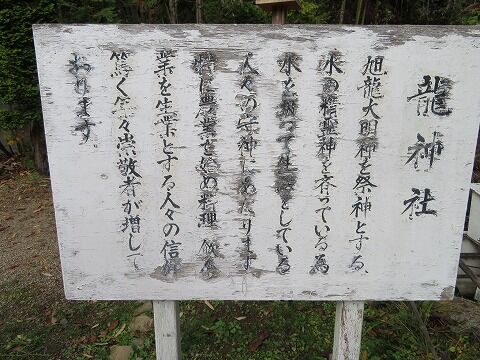 龍神社
旭龍大明神を祭神とする、
水の権龍神を呑っている為
水を扱って生業としている
人々の守神にあたります
特に農業を始め料理 飲食
業を生業とする人々の信仰
篤く年々崇敬者が増して
おります。